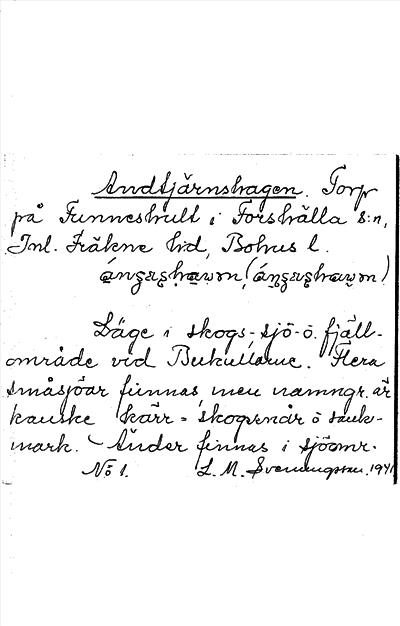 Andtjärnshagen. Torp
på Funneshult i Forshälla s:n,
Inl. Fräkne hd, Bohus l.
Läge i skogs-, sjö- o. fjäll-
område vid Bukullarne. Flera
småsjöar finnas, men namngr. är
kanske kärr = skogssnår o sank-
mark. Änder finnas i sjöomr.
No 1. L. M. Svenungsson. 1941